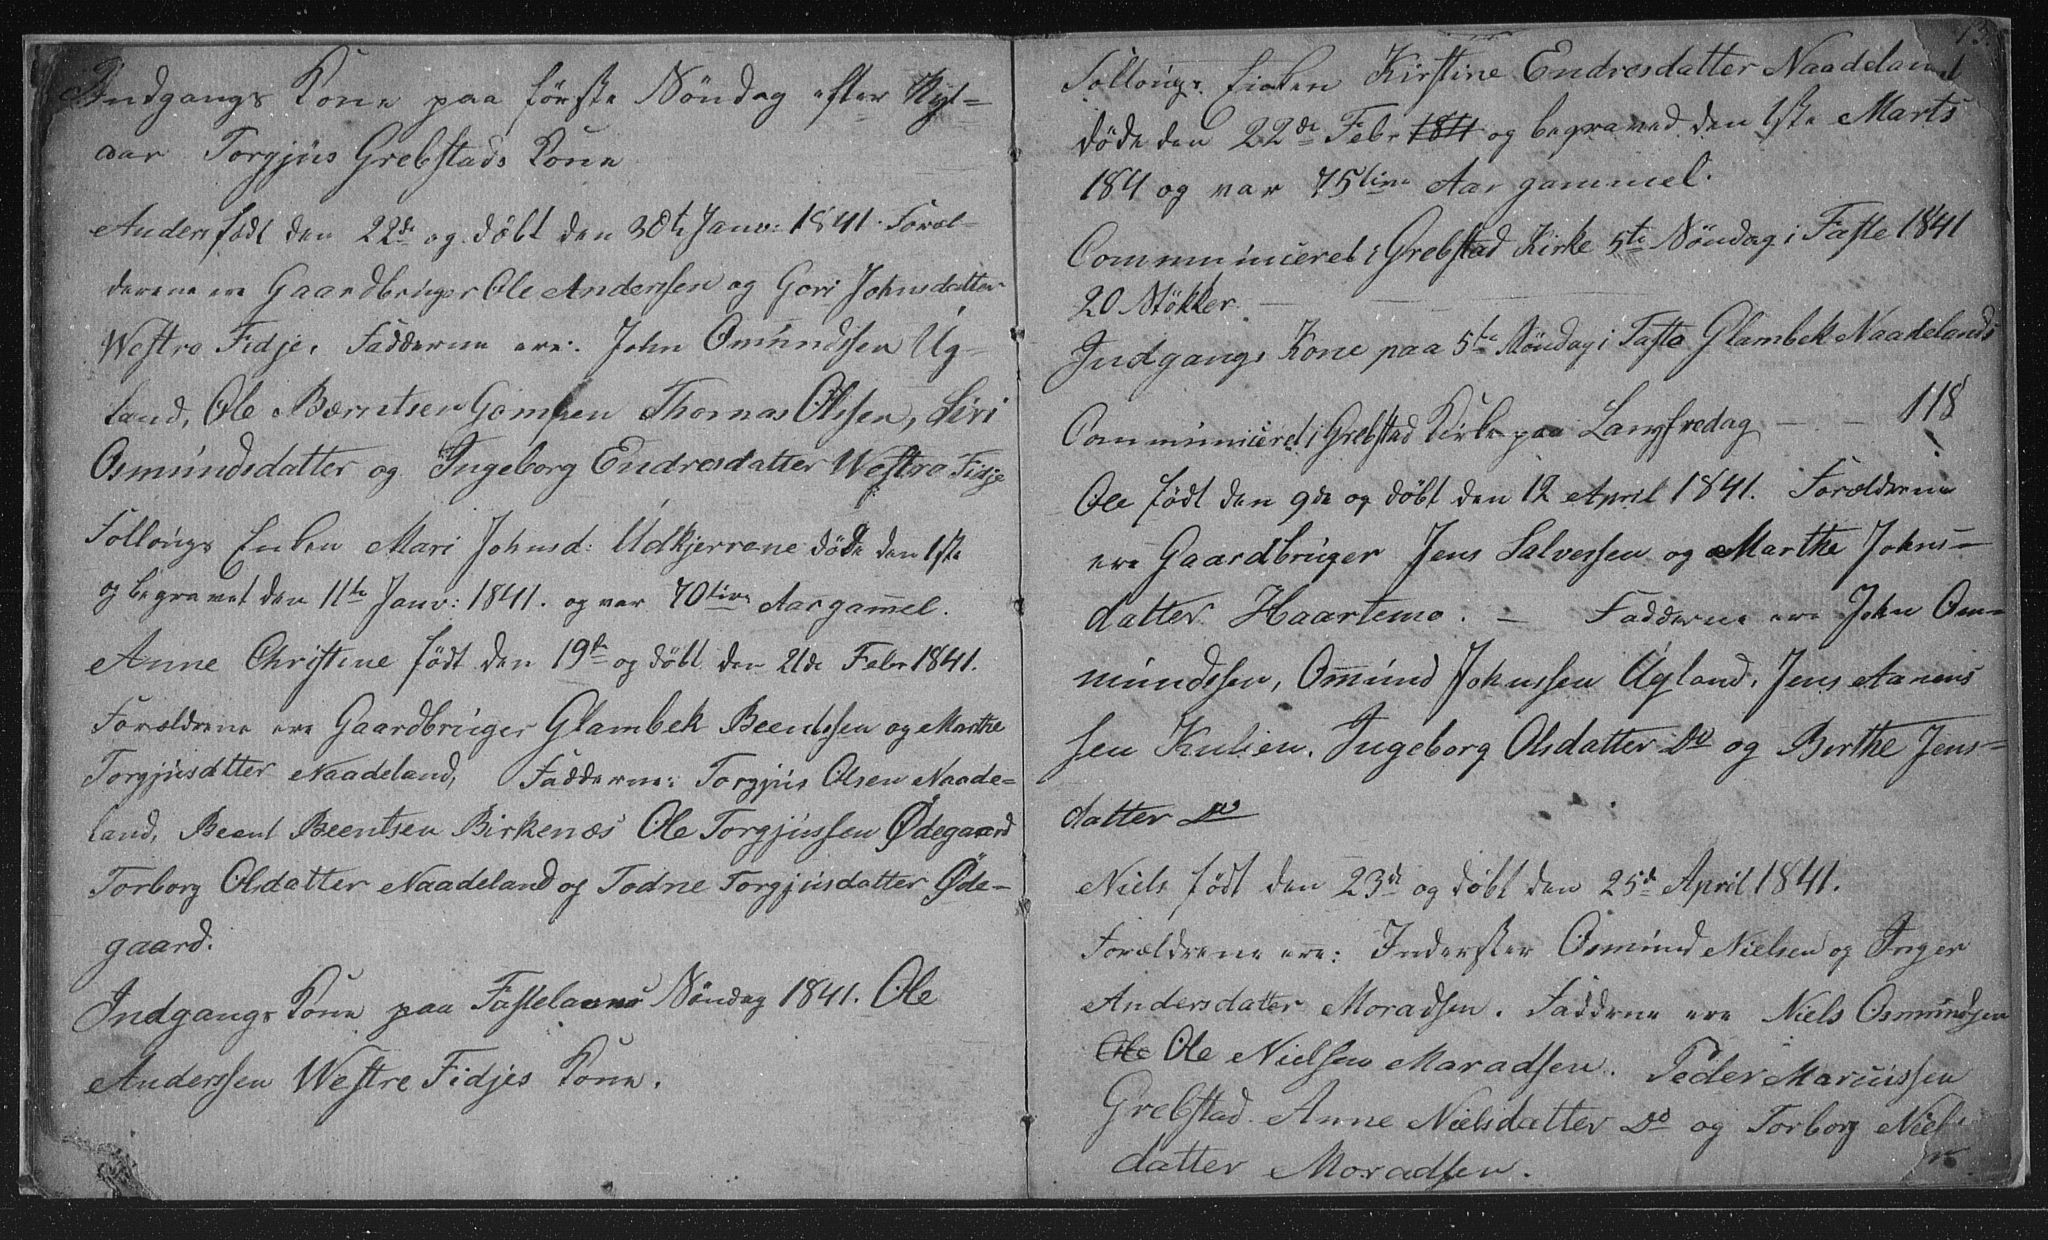 Indgangs Kone paa første Søndag efter Nyt-
aar Torgjus Grebstads Kone
Anders født den 22de og døbt den 30te Janv: 1841. Foræl-
derene ere Gaardbruger Ole Anderssen og Gori Johnsdatter
Westre Fidje. Fadderne ere: John Omundssen Ug-
land, Ole Bærntsen Thomas Olssen, Siri
Osmundsdatter og Ingeborg Endresdatter Westre Fidje
Follougs Enken Mari Johnsd: Udkjerrene døde den 1ste
og begravet den 11te Janv: 1841. og var 70tive Aar gammel.
Anne Christine født den 19de og døbt den 21de Febr 1841.
Forældrene ere Gaardbruger Glambek Beentssen og Marthe
Torgjusdatter Naadeland, Fadderne: Torgjus Olsen Naade-
land, Beent Beentsen Birkenæs Ole Torgjussen Ødegaard
Torborg Olsdatter Naadeland og Todne Torgjusdatter Øde-
gaard.
Indgangs Kone paa Fastelavns Søndag 1841. Ole
Anderssen Westre Fidjes Kone.
13.
Follougs Enken Kirstine Endresdatter Naadeland
døde den 22de Febr 1841 og begraved den 1ste Marts
184 og var 75tive Aar gammel.
Communiceret i Grebstad Kirke 5te Søndag i Faste 1841
20 Støkker.
Indgangs Kone paa 5te Søndag i Faste Glambek Naadelands
Communiceret i Grebstad Kirke paa Langfredag - - - 118
Ole født den 9de og døbt den 12 April 1841. Forælderne
ere Gaardbruger Jens Salvessen og Marthe Johns-
datter Haartemo. - Fadderne ere John Om-
mundssen, Omund Johnssen Ugland, Jens Aanens
sen Kulien. Ingeborg Olsdatter Do og Berthe Jens-
datter Do
Niels født den 23de og døbt den 25de April 1841.
Forældrene ere: Inderster Osmund Nielsen og Inger
Andersdatter Moradsen. Fadderne ere Niels Osmundsen
Ole Ole Nielsen Maradsen. Peder Marcussen
Grebstad Anne Nielsdatter Do og Torborg Niels
datter Moradsen.